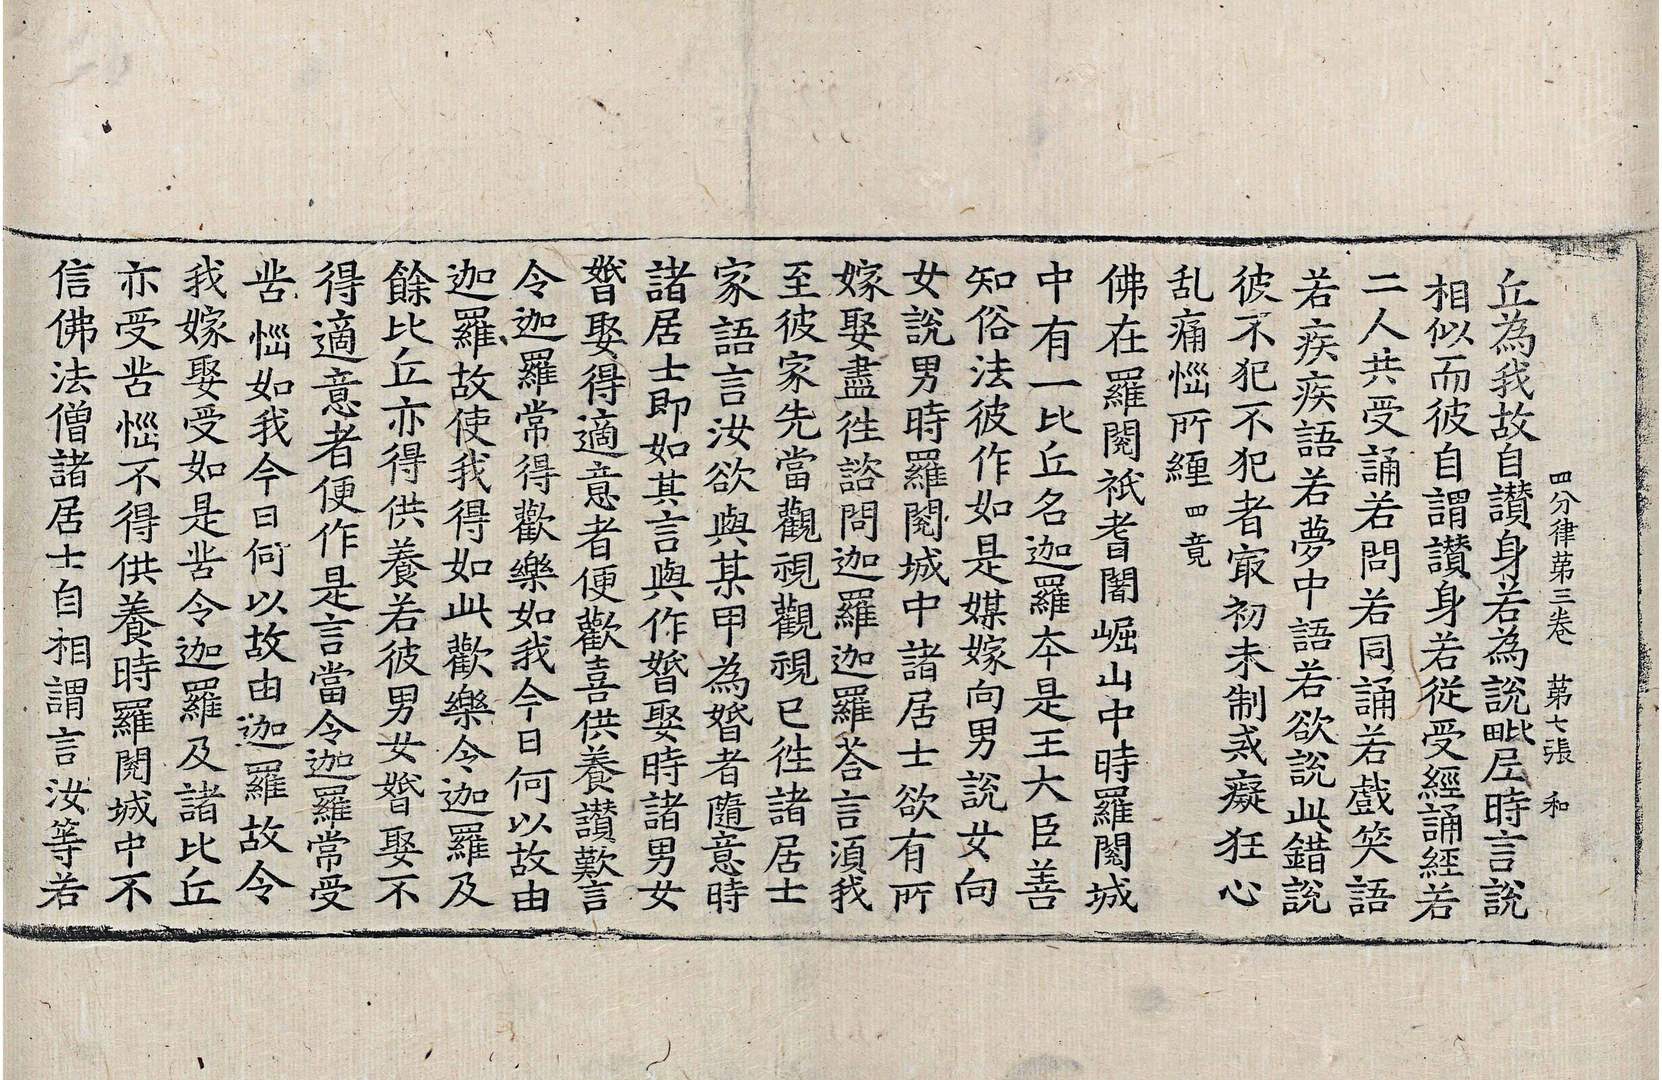 四分律苐三卷 苐七張 和
丘為我故自讃身若為說毗尼時言說
相似而彼自謂讃身若從受經誦經若
二人共受誦若問若同誦若戲笑語
若疾疾語若夢中語若欲說此錯說
彼不犯不犯者㝡初未制戒癡狂心
乱痛惱所纏 四竟
佛在羅閱祇耆闍崛山中時羅閱城
中有一比丘名迦羅夲是王大臣善
知俗法彼作如是媒嫁向男說女向
女說男時羅閱城中諸居士欲有所
嫁娶盡徃諮問迦羅迦羅荅言湏我
至彼家先當觀視觀視已徃諸居士
家語言汝欲與某甲為婚者隨意時
諸居士即如其言與作婚娶時諸男女
婚娶得適意者便歡喜供養讃歎言
令迦羅常得歡樂如我今日何以故由
迦羅故使我得如此歡樂令迦羅及
餘比丘亦得供養若彼男女婚娶不
得適意者便作是言當令迦羅常受
苦惱如我今日何以故由迦羅故令
我嫁娶受如是苦令迦羅及諸比丘
亦受苦惱不得供養時羅閱城中不
信佛法僧諸居士自相謂言汝等若